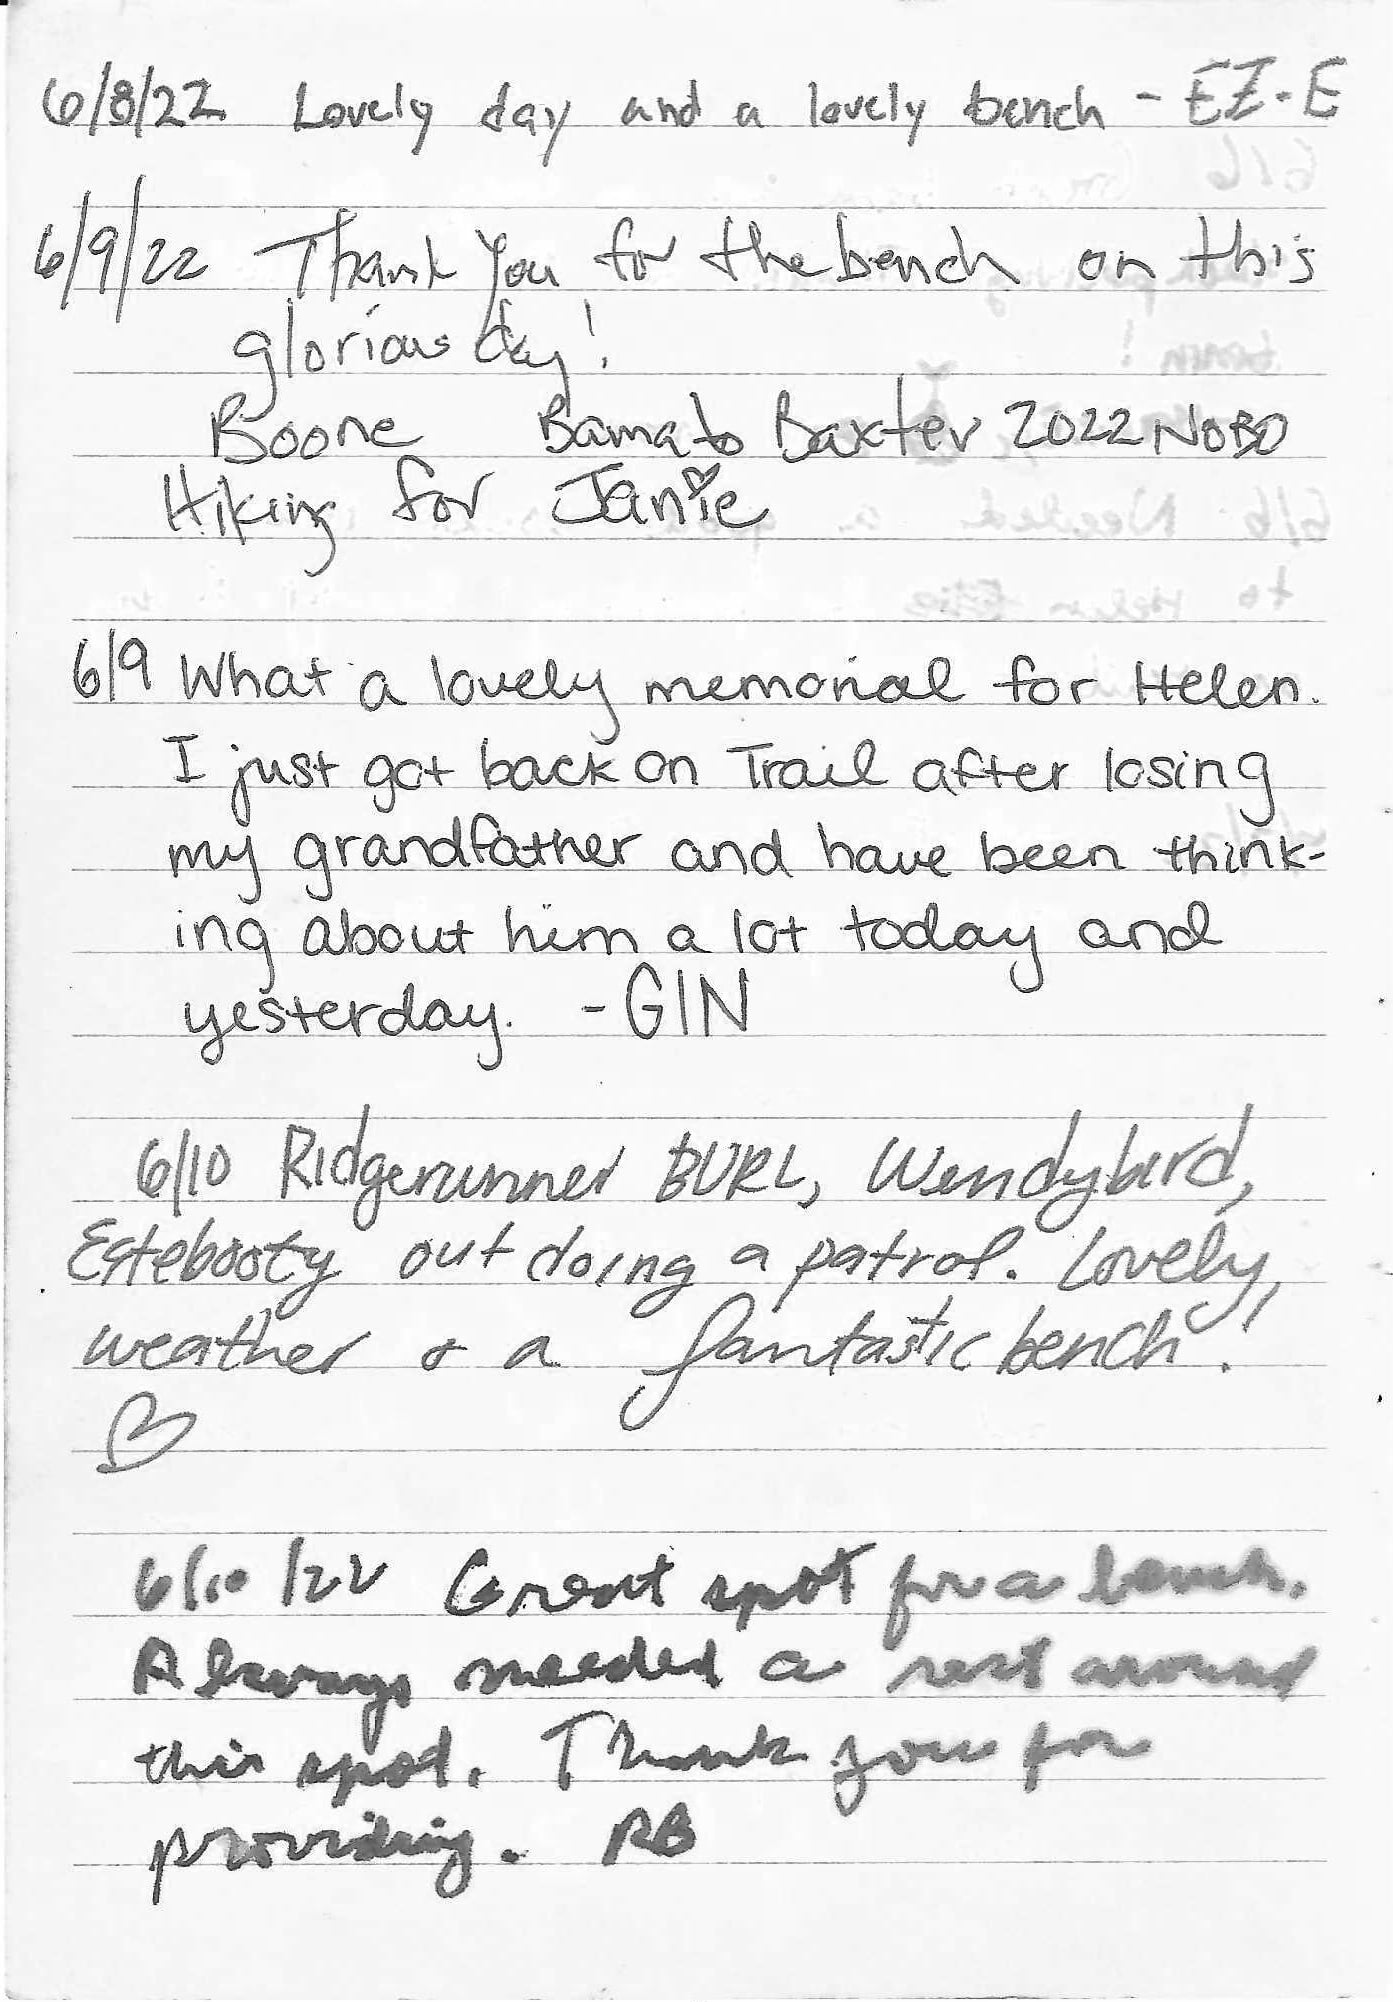 6/8/22 Lovely day and a lovely bench - EZ-E
6/9/22 Thank you for the bench on this
glorious day!
Boone Bama to Baxter 2022 NOBO
Hiking for Janie
6/9 What a lovely memorial for Helen.
I just got back on Trail after losing
my grandfather and have been think-
ing about him a lot today and
yesterday. -GIN
6/10 Ridgerunner BURL, Wendybird,
Estebooty out doing a patrol. Lovely
weather & a fantastic bench!
6/10/22 Great spot for a bench.
Always needed a rest around
this spot. Thank you for
providing. RB